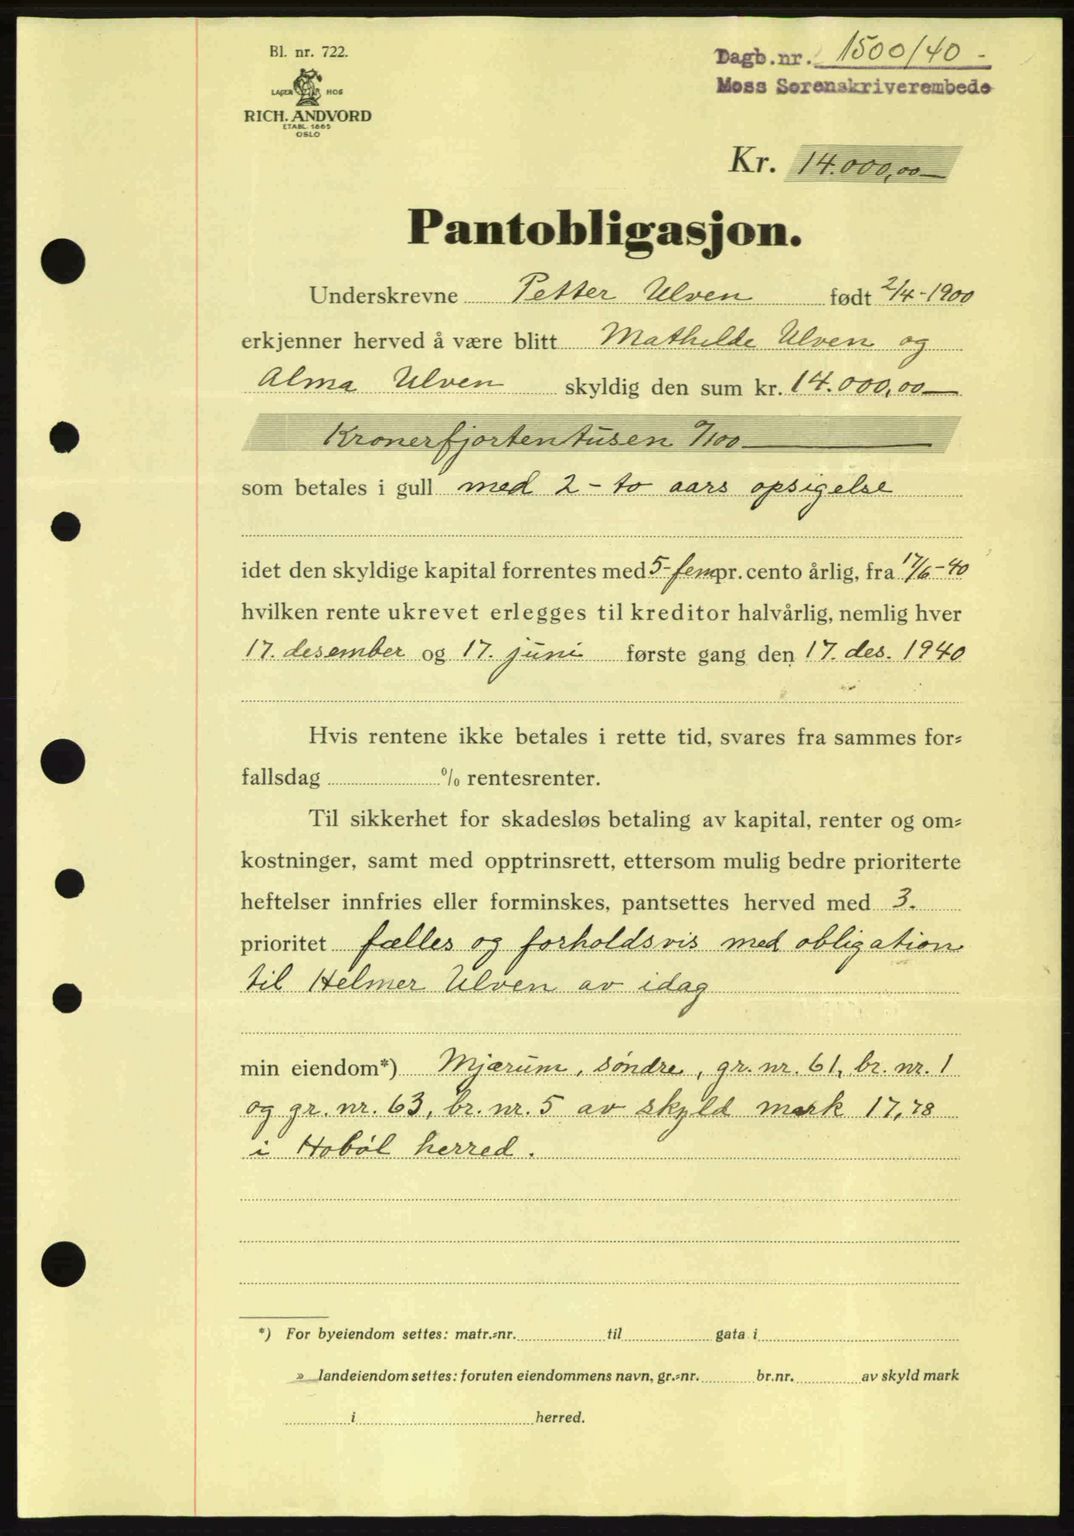 Bl. nr. 722.
LAGER HOS
RICH. ANDVORD
ETABL. 1865
OSLO
Dagb.nr. 1500/40 -
Moss Sorenskriverembede
Kr. 14.000,00
Pantobligasjon.
Underskrevne Petter Ulven født 2/4-1900
erkjenner herved å være blitt Mathilde Ulven og
Alma Ulven skyldig den sum kr. 14.000,00
Kronerfjortentusen 0/100
som betales i gull med 2 - to aars opsigelse
idet den skyldige kapital forrentes med 5-fem pr. cento årlig, fra 17/6-40
hvilken rente ukrevet erlegges til kreditor halvårlig, nemlig hver
17. desember og 17. juni første gang den 17. des. 1940
Hvis rentene ikke betales i rette tid, svares fra sammes for-
fallsdag % rentesrenter.
Til sikkerhet for skadesløs betaling av kapital, renter og om-
kostninger, samt med opptrinsrett, ettersom mulig bedre prioriterte
heftelser innfries eller forminskes, pantsettes herved med 3.
prioritet fælles og forholdsvis med obligation
til Helmer Ulven av idag
min eiendom*) Mjærum, søndre, gr. nr. 61, br. nr. 1
og gr. nr. 63, br. nr. 5 av skyld mark 17,78
i Hobøl herred.
*) For byeiendom settes: matr.-nr. til gata i
» landeiendom settes: foruten eiendommens navn, gr.-nr. br.nr. av skyld mark
i herred.